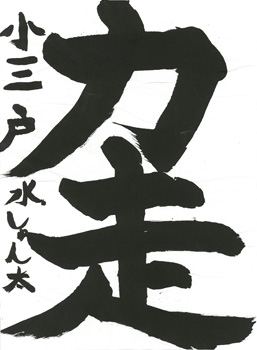 力走
小三 戸水しゅん太